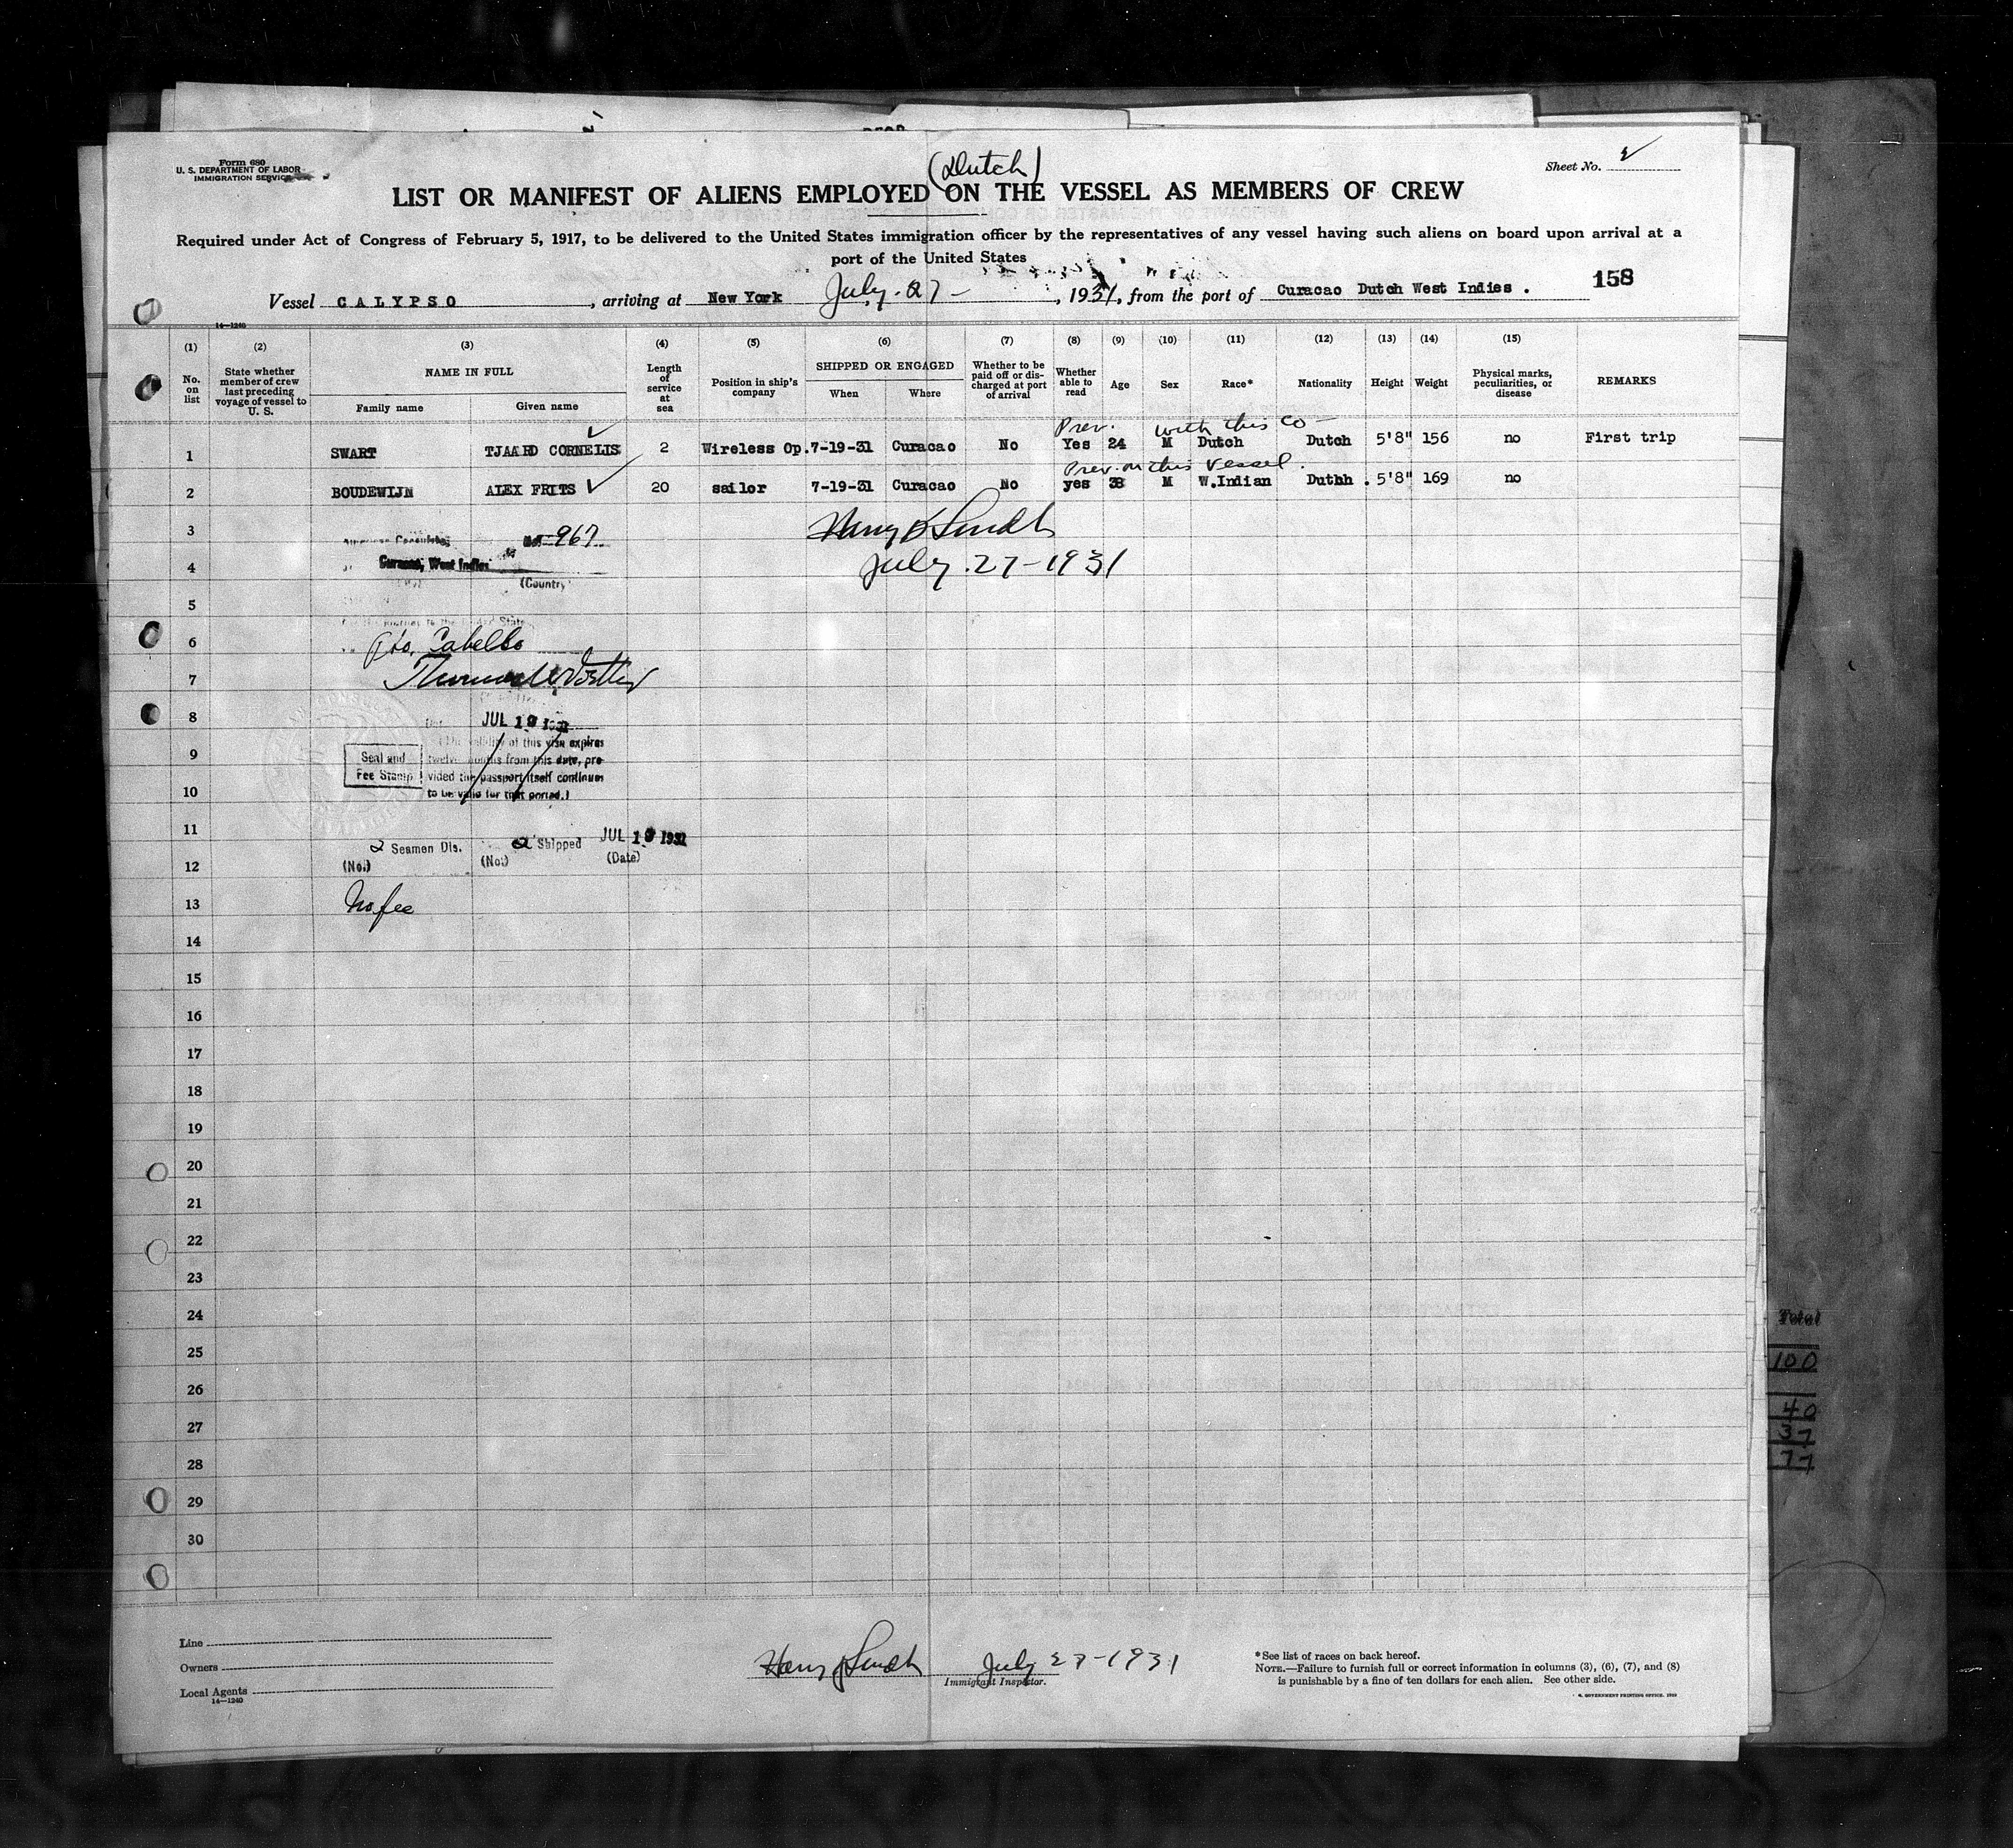 Form 680
U. S. DEPARTMENT OF LABOR
IMMIGRATION SERVICE
(Dutch)
Sheet No. 2
LIST OR MANIFEST OF ALIENS EMPLOYED ON THE VESSEL AS MEMBERS OF CREW
Required under Act of Congress of February 5, 1917, to be delivered to the United States immigration officer by the representatives of any vessel having such aliens on board upon arrival at a
port of the United States
Vessel CALYPSO, arriving at New York July-27-, 1931, from the port of Curacao Dutch West Indies. 158
14—1240
(1) (2) (3) (4) (5) (6) (7) (8) (9) (10) (11) (12) (13) (14) (15)
No. on list
State whether member of crew last preceding voyage of vessel to U. S.
NAME IN FULL
Family name
Given name
Length of service at sea
Position in ship's company
SHIPPED OR ENGAGED
When
Where
Whether to be paid off or discharged at port of arrival
Whether able to read
Age
Sex
Race*
Nationality
Height
Weight
Physical marks, peculiarities, or disease
REMARKS
Prev. with this Co-
1 SWART TJAARD CORNELIS 2 Wireless Op. 7-19-31 Curacao No Yes 24 M Dutch Dutch 5'8" 156 no First trip
Prev. on this vessel.
2 BOUDEWIJN ALEX FRITS 20 sailor 7-19-31 Curacao No yes 38 M W.Indian Duthh . 5'8" 169 no
3 967
4 Curacao, West Indies July.27-1931
(Country)
5
6 Pto. Cabello
7
8 JUL 19
9 of this visa expires
Seal and twelve months from this date, pro-
Fee Stamp vided the passport itself continues
10 to be valid for that period.)
11
2 Seamen Dis. 2 Shipped JUL 19 1931
12 (No.) (No.) (Date)
13 No fee
14
15
16
17
18
19
20
21
22
23
24
25
26
27
28
29
30
Total
100
40
37
77
Line
Owners
Local Agents
14—1240
July 27-1931
Immigrant Inspector.
*See list of races on back hereof.
NOTE.—Failure to furnish full or correct information in columns (3), (6), (7), and (8)
is punishable by a fine of ten dollars for each alien. See other side.